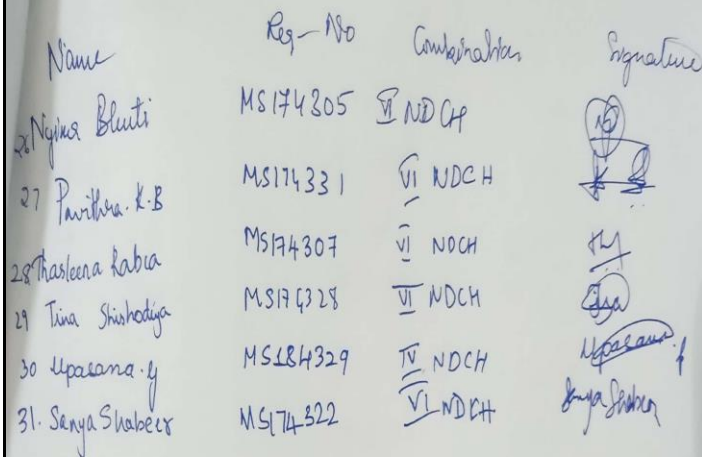 Name Reg-No Combination Signature
26 Nyima Bhuti MS174305 VI NDCH
27 Pavithra. K.B MS174331 VI NDCH
28 Thasleena Kabca MS174307 VI NDCH
29 Tina Shishodiya MS174328 VI NDCH
30 Upasana.y MS184329 IV NDCH Upasana.y
31. Sanya Shabeer MS174322 VI NDCH Sanya Shabeer